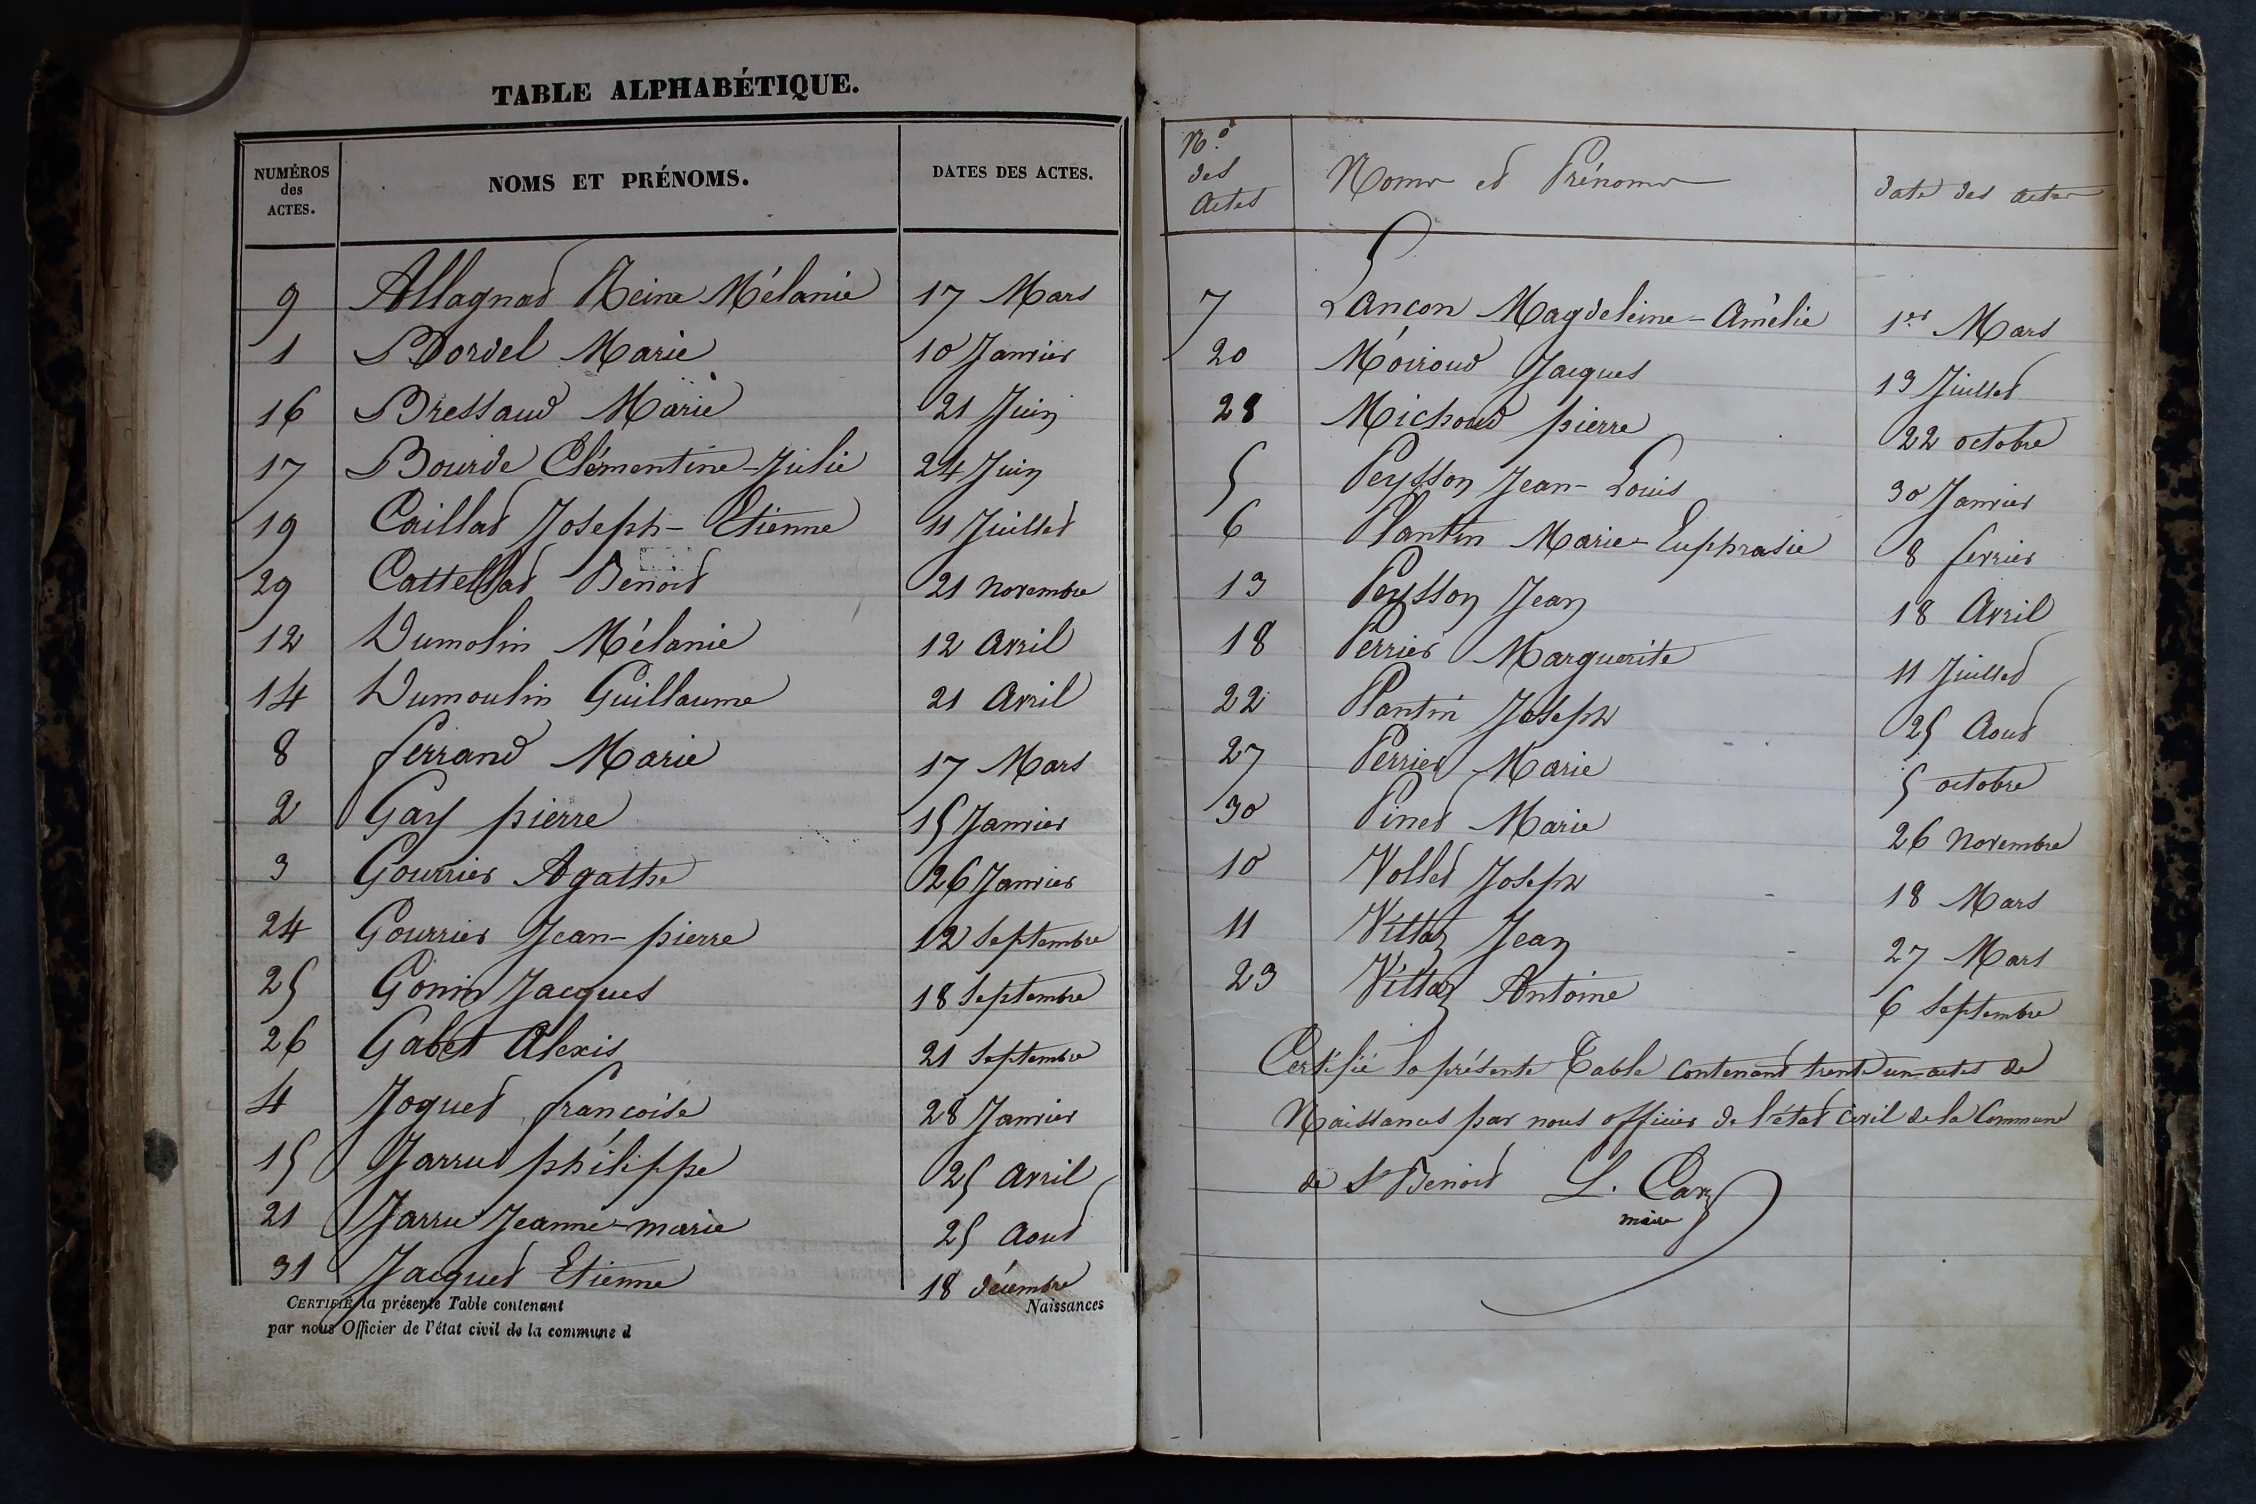 TABLE ALPHABÉTIQUE.
NUMÉROS des ACTES. NOMS ET PRÉNOMS. DATES DES ACTES.
9 Allagnat Reine Mélanie 17 Mars
1 Bordel Marie 10 Janvier
16 Bressaud Marie 21 Juin
17 Bourde Clémentine-Julie 24 Juin
19 Caillat Joseph-Etienne 11 Juillet
29 Cattellat Benoit 21 Novembre
12 Dumolin Mélanie 12 Avril
14 Dumoulin Guillaume 21 Avril
8 ferrand Marie 17 Mars
2 Gay pierre 15 Janvier
3 Gourrier Agathe 26 Janvier
24 Gourrier Jean-pierre 12 Septembre
25 Gonin Jacques 18 Septembre
26 Gabet Alexis 21 Septembre
4 Joguet francoise 28 Janvier
15 Jarrus philippe 25 Avril
21 Jarru Jeanne-marie 25 Aout
31 Jacquet Etienne 18 décembre
CERTIFIÉ la présente Table contenant Naissances
par nous Officier de l'état civil de la commune d
Nos des Actes Noms et Prénoms date des actes
7 Lançon Magdeleine-Amélie 1er Mars
20 Moiroud Jacques 13 Juillet
28 Michoud pierre 22 octobre
5 Peysson Jean-Louis 30 Janvier
6 Plantin Marie-Euphrasie 8 fevrier
13 Peysson Jean 18 Avril
18 Perrier Marguerite 11 Juillet
22 Plantin Joseph 25 Aout
27 Perrier Marie 5 octobre
30 Pinet Marie 26 Novembre
10 Vollet Joseph 18 Mars
11 Vittoz Jean 27 Mars
23 Vittoz Antoine 6 Septembre
Certifié la présente Table contenant trente un actes de
Naissances par nous officier de l'état civil de la Commune
de St Benoit L. Cary
maire